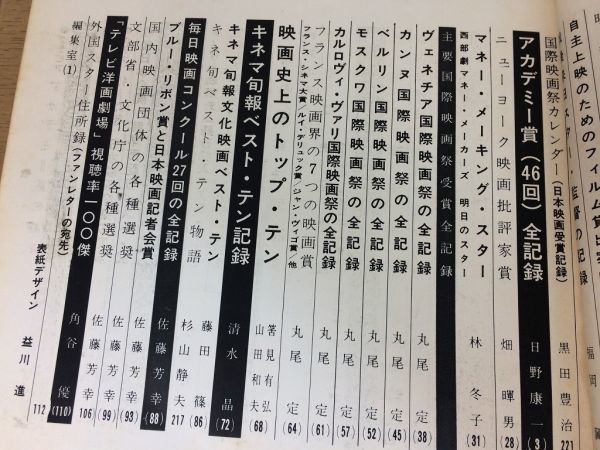 自主上映のためのフィルム貸出
国際映画祭カレンダー(日本映画受賞記録) 黒田豊治 221
アカデミー賞(46回)全記録 日野康一 (3)
ニューヨーク映画批評家賞 畑暉男 (28)
マネー・メーキング・スター 林冬子 (31)
西部劇マネー・メーカーズ 明日のスター
主要国際映画祭受賞全記録
ヴェネチア国際映画祭の全記録 丸尾定 (38)
カンヌ国際映画祭の全記録 丸尾定 (45)
ベルリン国際映画祭の全記録 丸尾定 (52)
モスクワ国際映画祭の全記録 丸尾定 (57)
カルロヴィ・ヴァリ国際映画祭の全記録 丸尾定 (61)
フランス映画界の7つの映画賞 丸尾定 (64)
フランス・シネマ大賞/ルイ・デリュック賞/ジャン・ヴィゴ賞/他
映画史上のトップ・テン 筈見有弘 山田和夫 (68)
キネマ旬報ベスト・テン記録 清水晶 (72)
キネマ旬報文化映画ベスト・テン
キネ旬ベスト・テン物語 藤田篠 (86)
毎日映画コンクール27回の全記録 杉山静夫 217
ブルー・リボン賞と日本映画記者会賞 佐藤芳幸 (88)
国内映画団体の各種選奨 佐藤芳幸 (93)
文部省・文化庁の各種選奨 佐藤芳幸 (99)
「テレビ洋画劇場」視聴率一〇〇傑 佐藤芳幸 106
外国スター住所録(ファンレターの宛先) 角谷優 (110)
編集室(1) 112
表紙デザイン 益川進